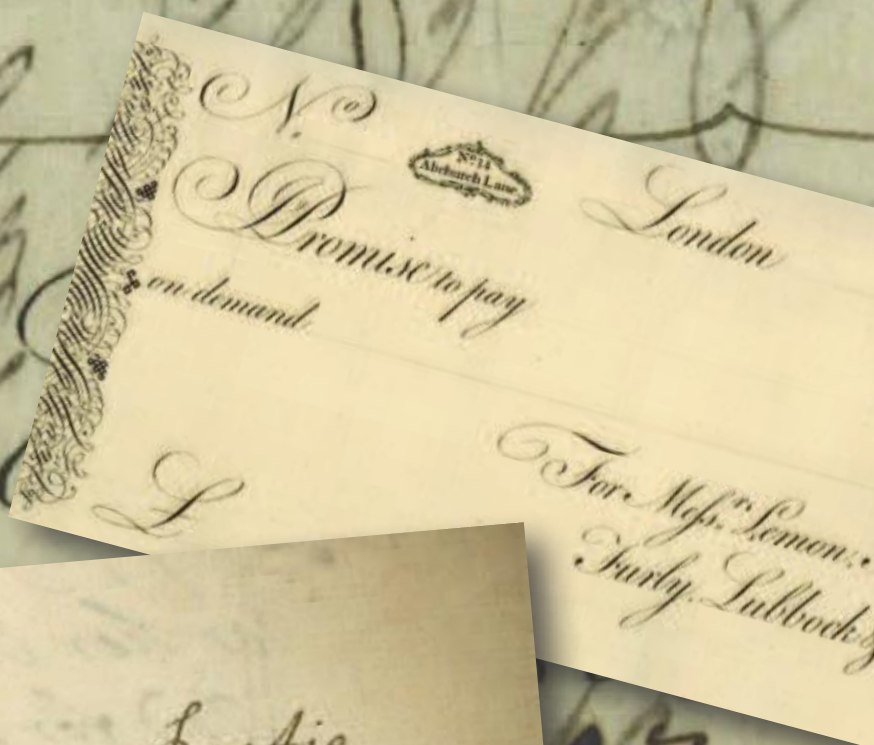 No.
No. 14
Abchurch Lane
London
Promise to pay
on demand
£
For Messrs. Lemon.
Furly. Lubbock &